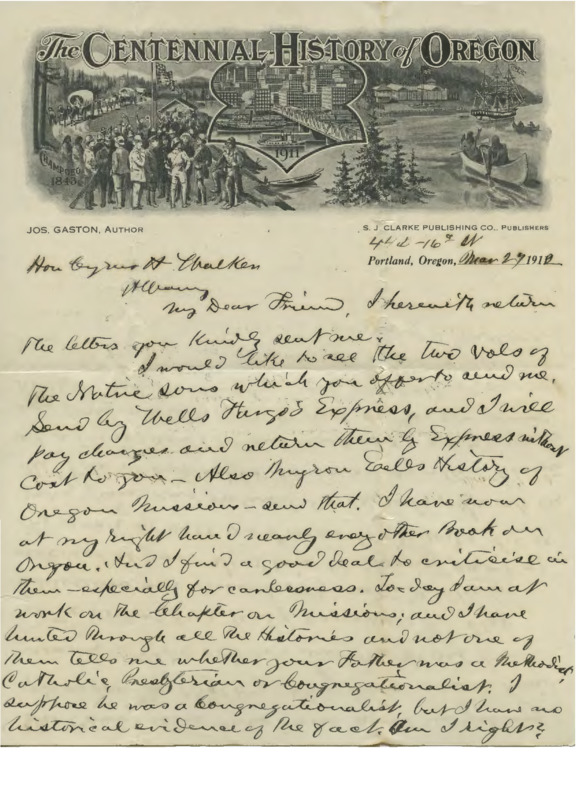 The CENTENNIAL HISTORY of OREGON
CHAMPOEG
1843
1911
JOS. GASTON, AUTHOR
S. J. CLARKE PUBLISHING CO., PUBLISHERS
442 - 16th St
Portland, Oregon, Mar 27 1912
Hon Cyrus H Walker
Albany
My Dear Friend, I herewith return
the letters you kindly sent me.
I would like to see the two vols of
the Native sons which you offer to send me.
Send by Wells Fargo's Express, and I will
pay charges and return them by Express without
Cost to you - Also Myron Eells History of
Oregon Missions - send that. I have now
at my right hand nearly every other Book on
Oregon. And I find a good deal to criticise in
them - especially for carelessness. To-day I am at
work on the Chapter on Missions; and I have
hunted through all the Histories and not one of
them tells me whether your Father was a Methodist,
Catholic, Presbyterian or Congregationalist. I
suppose he was a Congregationalist, but I have no
historical evidence of the fact. Am I right?